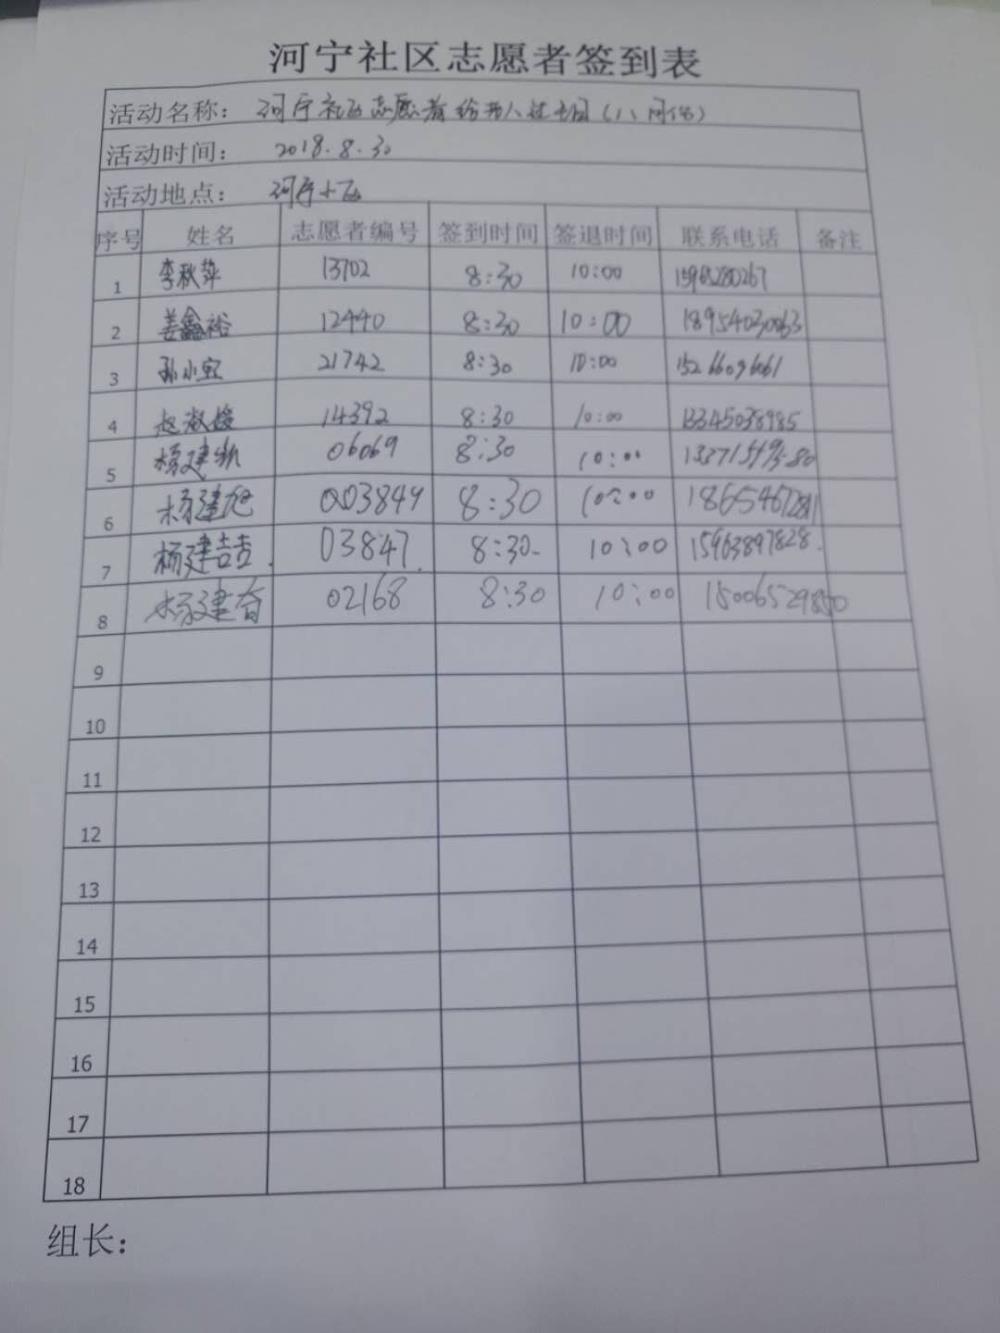 河宁社区志愿者签到表
活动名称： 河宁社区志愿者给老人过生日
活动时间： 2018.8.30
活动地点： 河宁小区
序号 姓名 志愿者编号 签到时间 签退时间 联系电话 备注
1 李秋萍 13702 8:30 10:00
2 姜鑫裕 12440 8:30 10:00 18954030063
3 孙小宝 21742 8:30 10:00 15266096061
4 赵淑嫒 14392 8:30 10:00 13345038985
5 杨建 06069 8:30 10:00
6 杨建旭 003849 8:30 10:00
7 杨建喆 03847 8:30 10:00 15963897828
8 杨建 02168 8:30 10:00
9
10
11
12
13
14
15
16
17
18
组长：